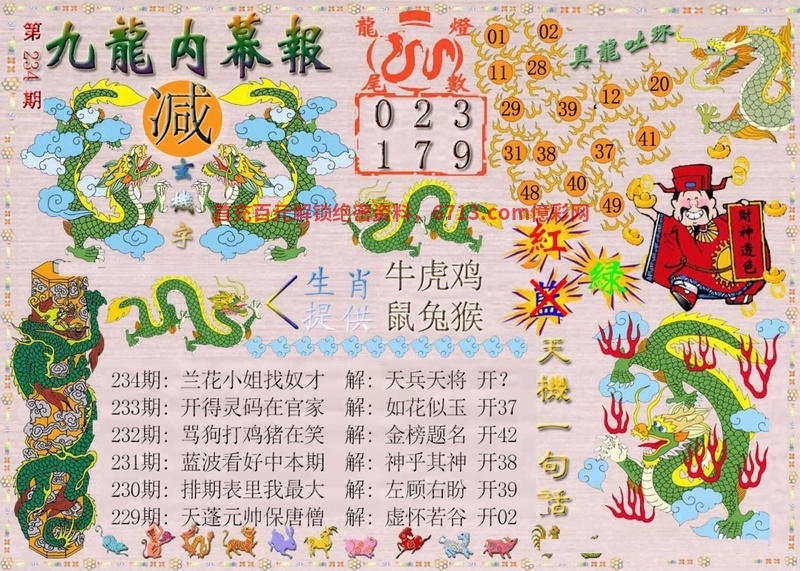 第234期
九龍内幕報
減
玄機字
龍燈
尾數
023
179
真龍吐珠
01 02
11 28
29 39 12 20
31 38 37 41
48 40 49
首充百元解锁绝密资料，6713.com億彩网
紅
藍
绿
財神透色
生肖提供
牛虎鸡
鼠兔猴
234期：兰花小姐找奴才 解：天兵天将 开？
233期：开得灵码在官家 解：如花似玉 开37
232期：骂狗打鸡猪在笑 解：金榜题名 开42
231期：蓝波看好中本期 解：神乎其神 开38
230期：排期表里我最大 解：左顾右盼 开39
229期：天蓬元帅保唐僧 解：虚怀若谷 开02
天機一句話